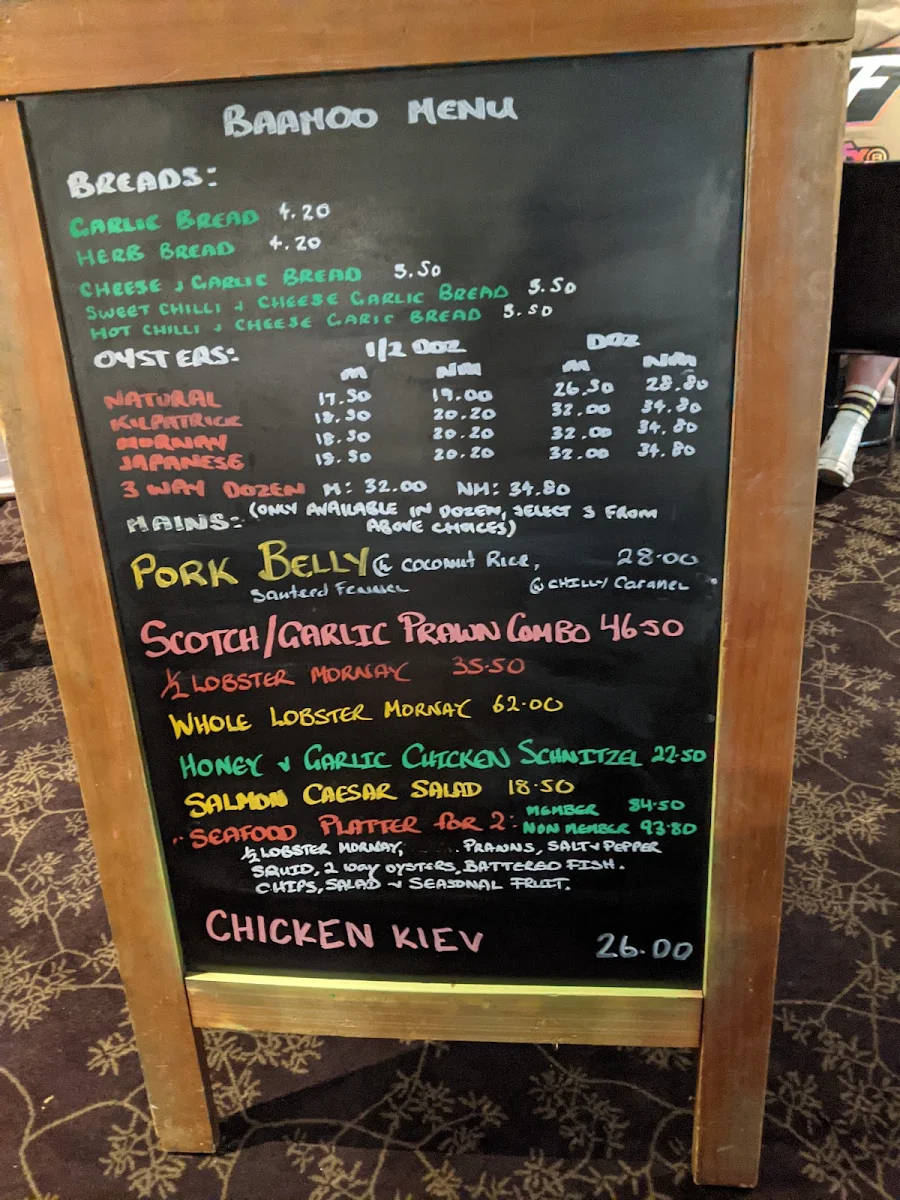 BAAMOO MENU
BREADS:
GARLIC BREAD 4.20
HERB BREAD 4.20
CHEESE & GARLIC BREAD 5.50
SWEET CHILLI & CHEESE GARLIC BREAD 5.50
HOT CHILLI & CHEESE GARIC BREAD 5.50
OYSTERS: 1/2 DOZ DOZ
M NM M NM
NATURAL 17.50 19.00 26.50 28.80
KILPATRICK 18.50 20.20 32.00 34.80
MORNAY 18.50 20.20 32.00 34.80
JAPANESE 18.50 20.20 32.00 34.80
3 WAY DOZEN M: 32.00 NM: 34.80
MAINS: (ONLY AVAILABLE IN DOZEN, SELECT 3 FROM
ABOVE CHOICES)
PORK BELLY @ COCONUT RICE, 28.00
Sauteed Fennel @ CHILLY Caramel
SCOTCH/GARLIC PRAWN COMBO 46.50
1/2 LOBSTER MORNAY 35.50
WHOLE LOBSTER MORNAY 62.00
HONEY & GARLIC CHICKEN SCHNITZEL 22.50
SALMON CAESAR SALAD 18.50
SEAFOOD PLATTER FOR 2: MEMBER 84.50
NON MEMBER 93.80
1/2 LOBSTER MORNAY, PRAWNS, SALT & PEPPER
SQUID, 2 way OYSTERS, BATTERED FISH.
CHIPS, SALAD & SEASONAL FRUIT.
CHICKEN KIEV 26.00